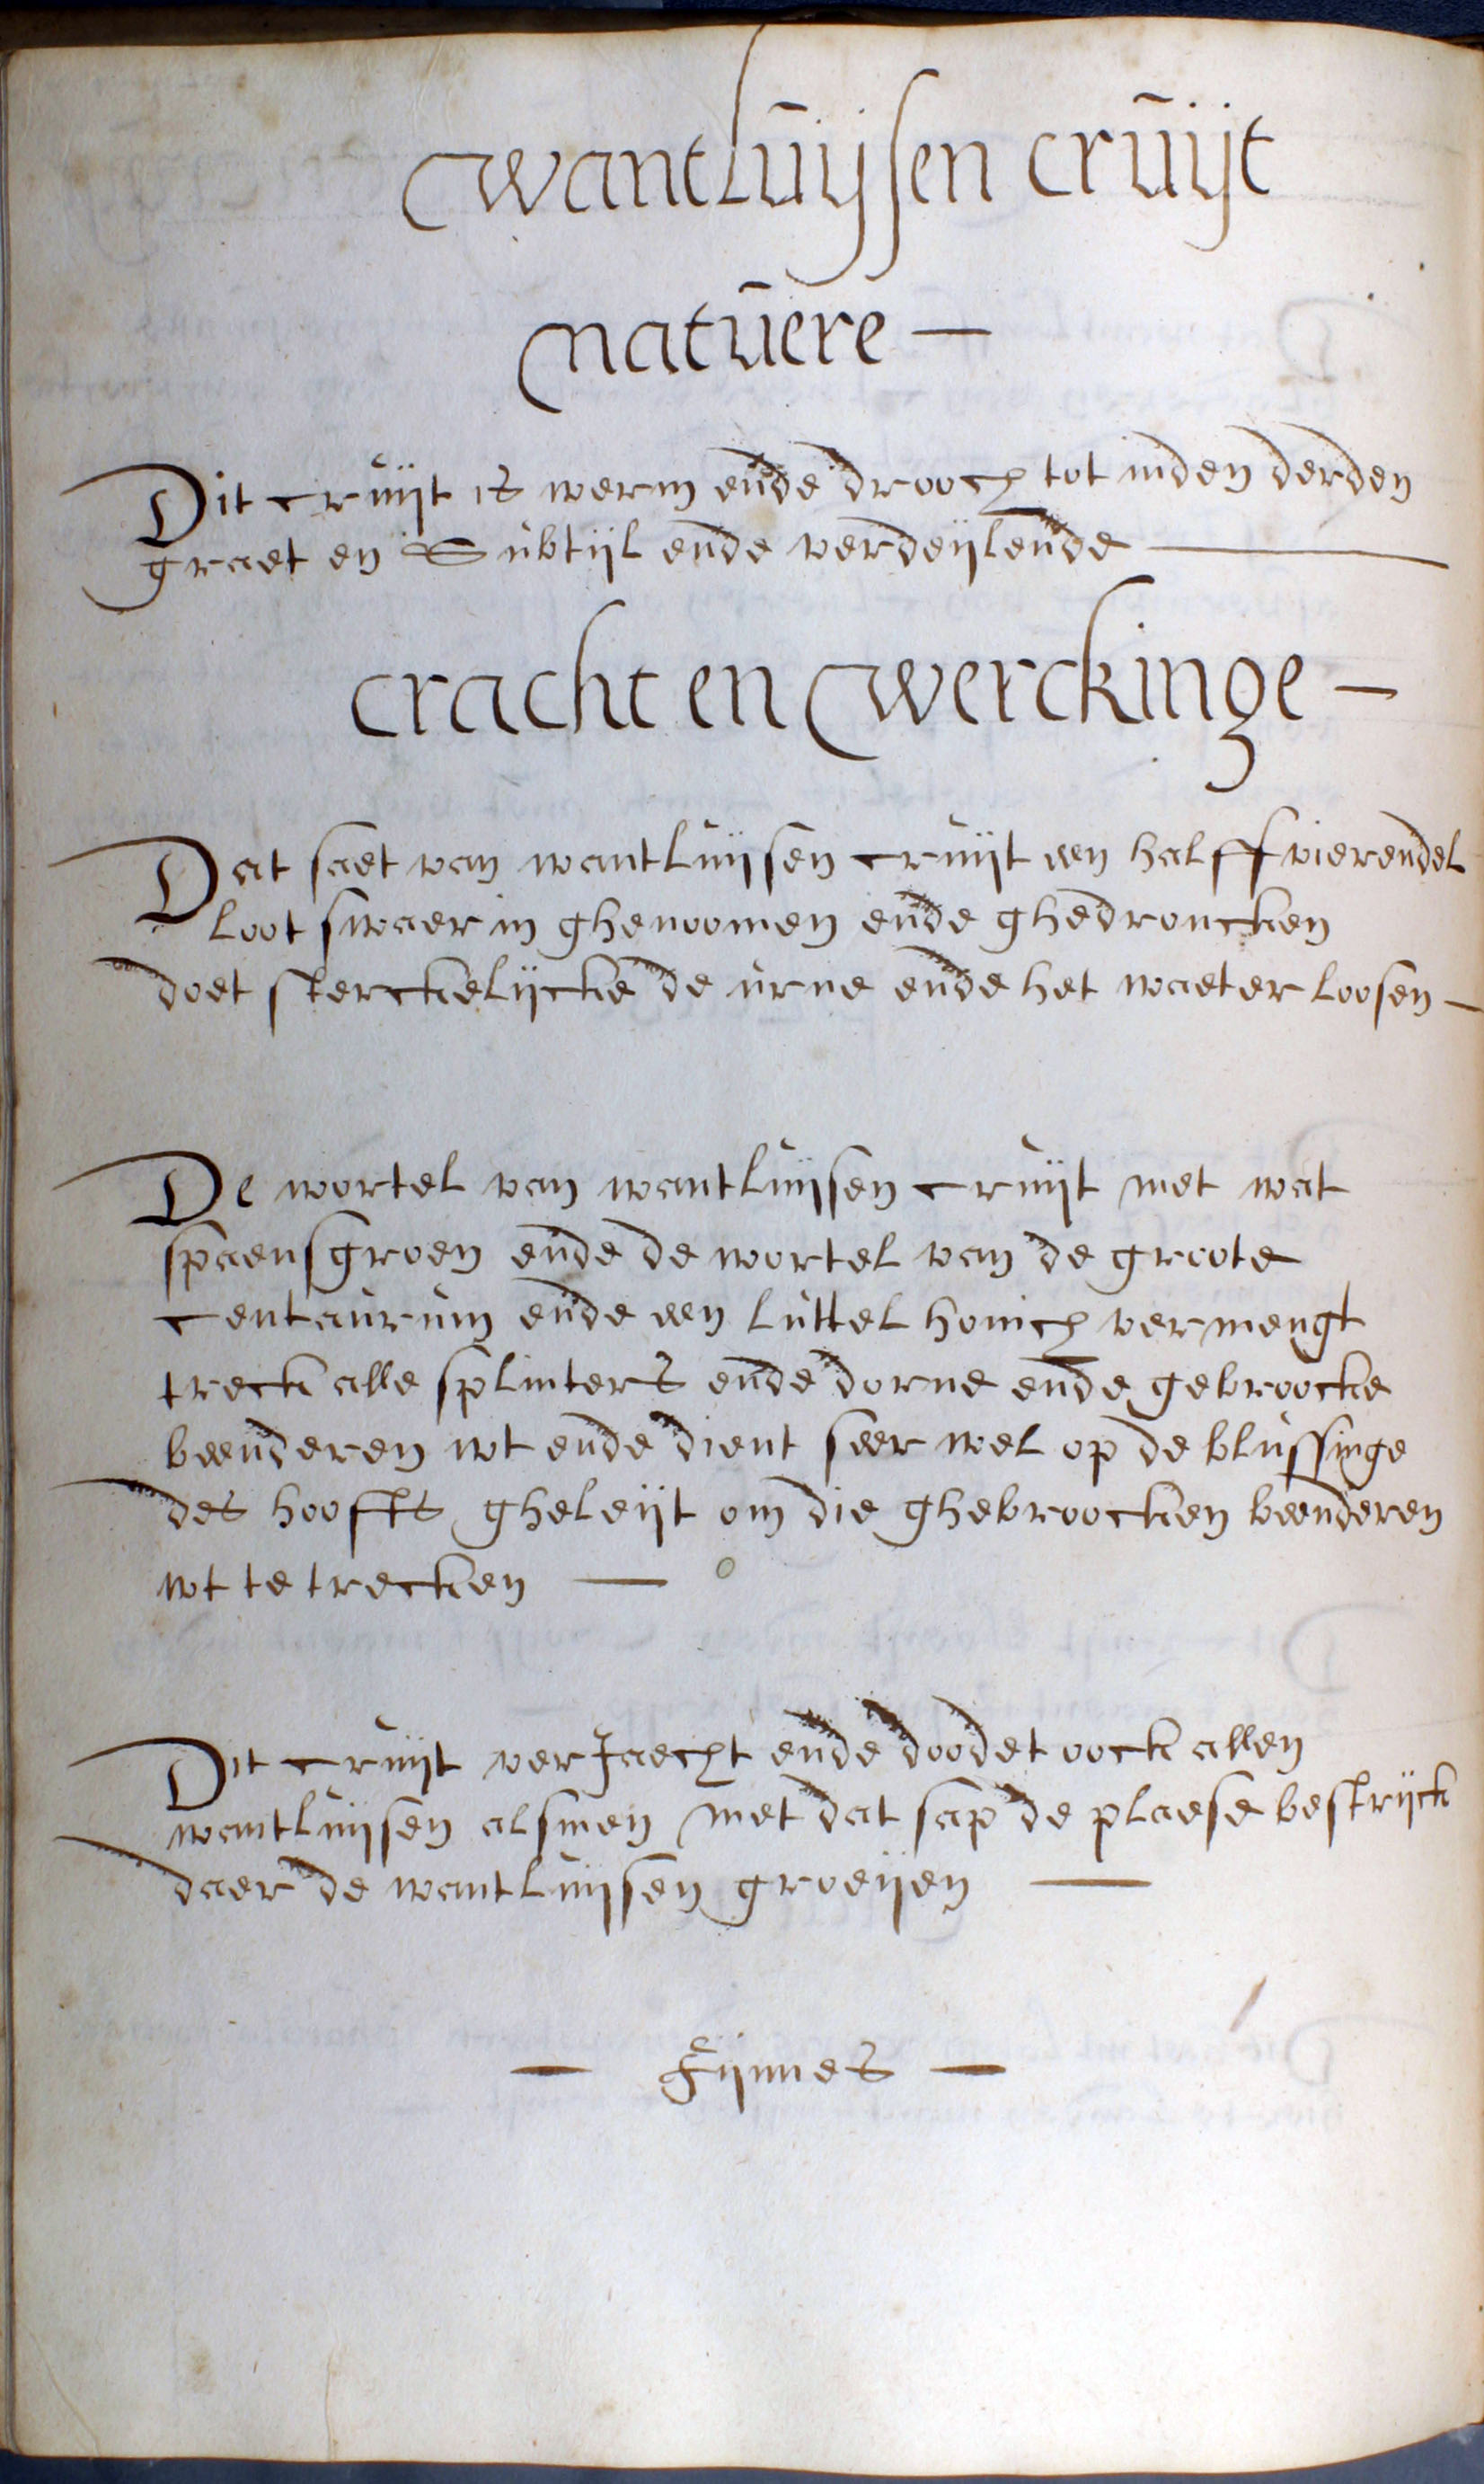 wantluijsen cruijt
natuere —
Dit cruijt is werm ende drooch tot inden derden
graet en Subtijl ende verdeijlende —
cracht en werckinge —
Dat saet van wantluijsen cruijt een halff vierendel
loot swaer in ghenoomen ende ghedroncken
doet sterckelijcke de urne ende het waeter loosen —
De wortel van wantluijsen cruijt met wat
spaensgroen ende de wortel van de groote
centaurum ende een luttel honich vermengt
treck alle splinters ende dorne ende gebroocke
beenderen wt ende dient seer wel op de blussinge
des hoofts gheleijt om die ghebroocken beenderen
wt te trecken —
Dit cruijt verJaecht ende doodet oock allen
wantluijsen alsmen met dat sap de plaese bestrijck
daer de wantluijsen groeijen —
— Fijnnes —